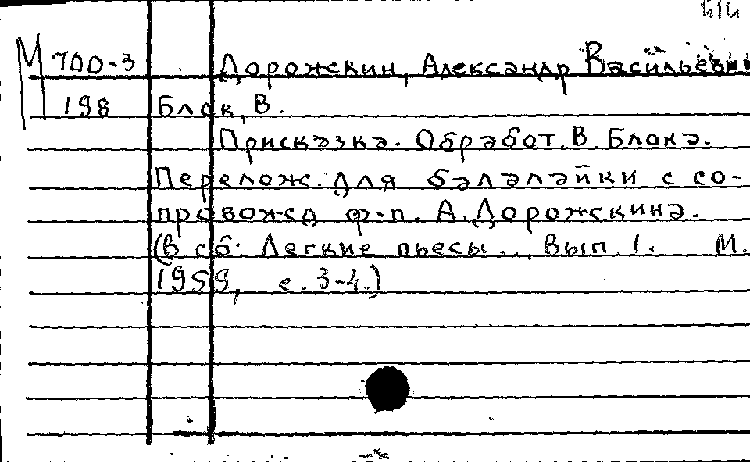 М 700-3 Дорожкин, Александр Васильевич
198 Блок, В.
Присказка. Обработ. В. Блока.
Перелож. для балалайки с со-
провожд ф-п. А. Дорожкина.
(В сб: Легкие пьесы... Вып. 1. М.
1959, с. 3-4.)